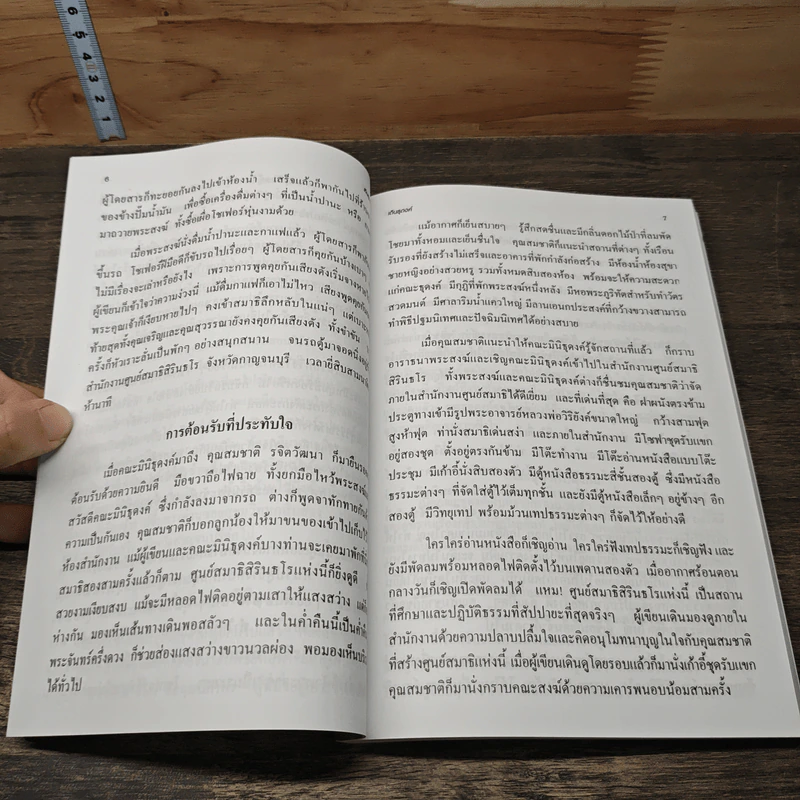 6
5
4
3
2
1
๖
ผู้โดยสารก็ทะยอยกันลงไปเข้าห้องน้ำ เสร็จแล้วก็พากันไปที่ร้าน
ของข้างปั๊มน้ำมัน เพื่อซื้อเครื่องดื่มต่างๆ ที่เป็นน้ำปานะ หรือ
มาถวายพระสงฆ์ ทั้งซื้อเผื่อโชเฟอร์หุ่นงามด้วย
เมื่อพระสงฆ์นั่งดื่มน้ำปานะและกาแฟแล้ว ผู้โดยสารก็พากัน
ขึ้นรถ โชเฟอร์ฝีมือดีก็ขับรถไปเรื่อยๆ ผู้โดยสารก็คุยกันบ้าง
ไม่มีเรื่องจะเล่าหรือยังไง เพราะการพูดคุยกันเสียงดังเริ่มจาง
ผู้เขียนก็เข้าใจว่าความง่วงนี้ แม้ดื่มกาแฟก็เอาไม่ไหว เสียงพูดคุย
พระคุณเจ้าก็เงียบหายไปๆ คงเข้าสมาธิลึกหลับในแน่ๆ แต่
ท้ายสุดทั้งคุณเจริญและคุณสุวรรณายังคงคุยกันเสียงดัง ทั้งขำขัน
ครั้งก็หัวเราะลั่นเป็นพักๆ อย่างสนุกสนาน จนรถตู้มาจอดนิ่ง
สำนักงานศูนย์สมาธิสิรินธโร จังหวัดกาญจนบุรี เวลายี่สิบสาม
ห้านาที
การต้อนรับที่ประทับใจ
เมื่อคณะมินิธุดงค์มาถึง คุณสมชาติ รจิตวัฒนา ก็มายืนรอ
ต้อนรับด้วยความยินดี มือขวาถือไฟฉาย ทั้งยกมือไหว้พระสงฆ์
สวัสดีคณะมินิธุดงค์ ซึ่งกำลังลงมาจากรถ ต่างก็พูดจาทักทายกัน
ความเป็นกันเอง คุณสมชาติก็บอกลูกน้องให้มาขนของเข้าไปเก็บ
ห้องสำนักงาน แม้ผู้เขียนและคณะมินิธุดงค์บางท่านจะเคยมาพัก
สมาธิสองสามครั้งแล้วก็ตาม ศูนย์สมาธิสิรินธโรแห่งนี้ก็ยิ่งดูดี
สวยงามเงียบสงบ แม้จะมีหลอดไฟติดอยู่ตามเสาให้แสงสว่าง
ห่างกัน มองเห็นเส้นทางเดินพอสลัวๆ และในค่ำคืนนี้เป็น
พระจันทร์ครึ่งดวง ก็ช่วยส่องแสงสว่างขาวนวลผ่อง พอมองเห็น
ได้ทั่วไป
เดินธุดงค์
7
แม้อากาศก็เย็นสบายๆ รู้สึกสดชื่นและมีกลิ่นดอกไม้ป่าที่ลมพัด
โชยมาทั้งหอมและเย็นชื่นใจ คุณสมชาติก็แนะนำสถานที่ต่างๆ ทั้งเรือน
รับรองที่ยังสร้างไม่เสร็จและอาคารที่พักกำลังก่อสร้าง มีห้องน้ำห้องสุขา
ชายหญิงอย่างสวยหรู รวมทั้งหมดสิบสองห้อง พร้อมจะให้ความสะดวก
แก่คณะธุดงค์ มีกุฏิที่พักพระสงฆ์หนึ่งหลัง มีหอพระภูริทัตสำหรับทำวัตร
สวดมนต์ มีศาลาริมน้ำแควใหญ่ มีลานเอนกประสงค์ที่กว้างขวางสามารถ
ทำพิธีปฐมนิเทศและปัจฉิมนิเทศได้อย่างสบาย
เมื่อคุณสมชาติแนะนำให้คณะมินิธุดงค์รู้จักสถานที่แล้ว ก็กราบ
อาราธนาพระสงฆ์และเชิญคณะมินิธุดงค์เข้าไปในสำนักงานศูนย์สมาธิ
สิรินธโร ทั้งพระสงฆ์และคณะมินิธุดงค์ต่างก็ชื่นชมคุณสมชาติว่าจัด
ภายในสำนักงานศูนย์สมาธิได้ดีเยี่ยม และที่เด่นที่สุด คือ ฝาผนังตรงข้าม
ประตูทางเข้ามีรูปพระอาจารย์หลวงพ่อวิริยังค์ขนาดใหญ่ กว้างสามฟุต
สูงห้าฟุต ท่านั่งสมาธิเด่นสง่า และภายในสำนักงาน มีโซฟาชุดรับแขก
อยู่สองชุด ตั้งอยู่ตรงกันข้าม มีโต๊ะทำงาน มีโต๊ะอ่านหนังสือแบบโต๊ะ
ประชุม มีเก้าอี้นั่งสิบสองตัว มีตู้หนังสือธรรมะสี่ชั้นสองตู้ ซึ่งมีหนังสือ
ธรรมะต่างๆ ที่จัดใส่ตู้ไว้เต็มทุกชั้น และยังมีตู้หนังสือเล็กๆ อยู่ข้างๆ อีก
สองตู้ มีวิทยุเทป พร้อมม้วนเทปธรรมะต่างๆ ก็จัดไว้ให้อย่างดี
ใครใคร่อ่านหนังสือก็เชิญอ่าน ใครใคร่ฟังเทปธรรมะก็เชิญฟัง และ
ยังมีพัดลมพร้อมหลอดไฟติดตั้งไว้บนเพดานสองตัว เมื่ออากาศร้อนตอน
กลางวันก็เชิญเปิดพัดลมได้ แหม! ศูนย์สมาธิสิรินธโรแห่งนี้ เป็นสถาน
ที่ศึกษาและปฏิบัติธรรมที่สัปปายะที่สุดจริงๆ ผู้เขียนเดินมองดูภายใน
สำนักงานด้วยความปลาบปลื้มใจและคิดอนุโมทนาบุญในใจกับคุณสมชาติ
ที่สร้างศูนย์สมาธิแห่งนี้ เมื่อผู้เขียนเดินดูโดยรอบแล้วก็มานั่งเก้าอี้ชุดรับแขก
คุณสมชาติก็มานั่งกราบคณะสงฆ์ด้วยความเคารพนอบน้อมสามครั้ง